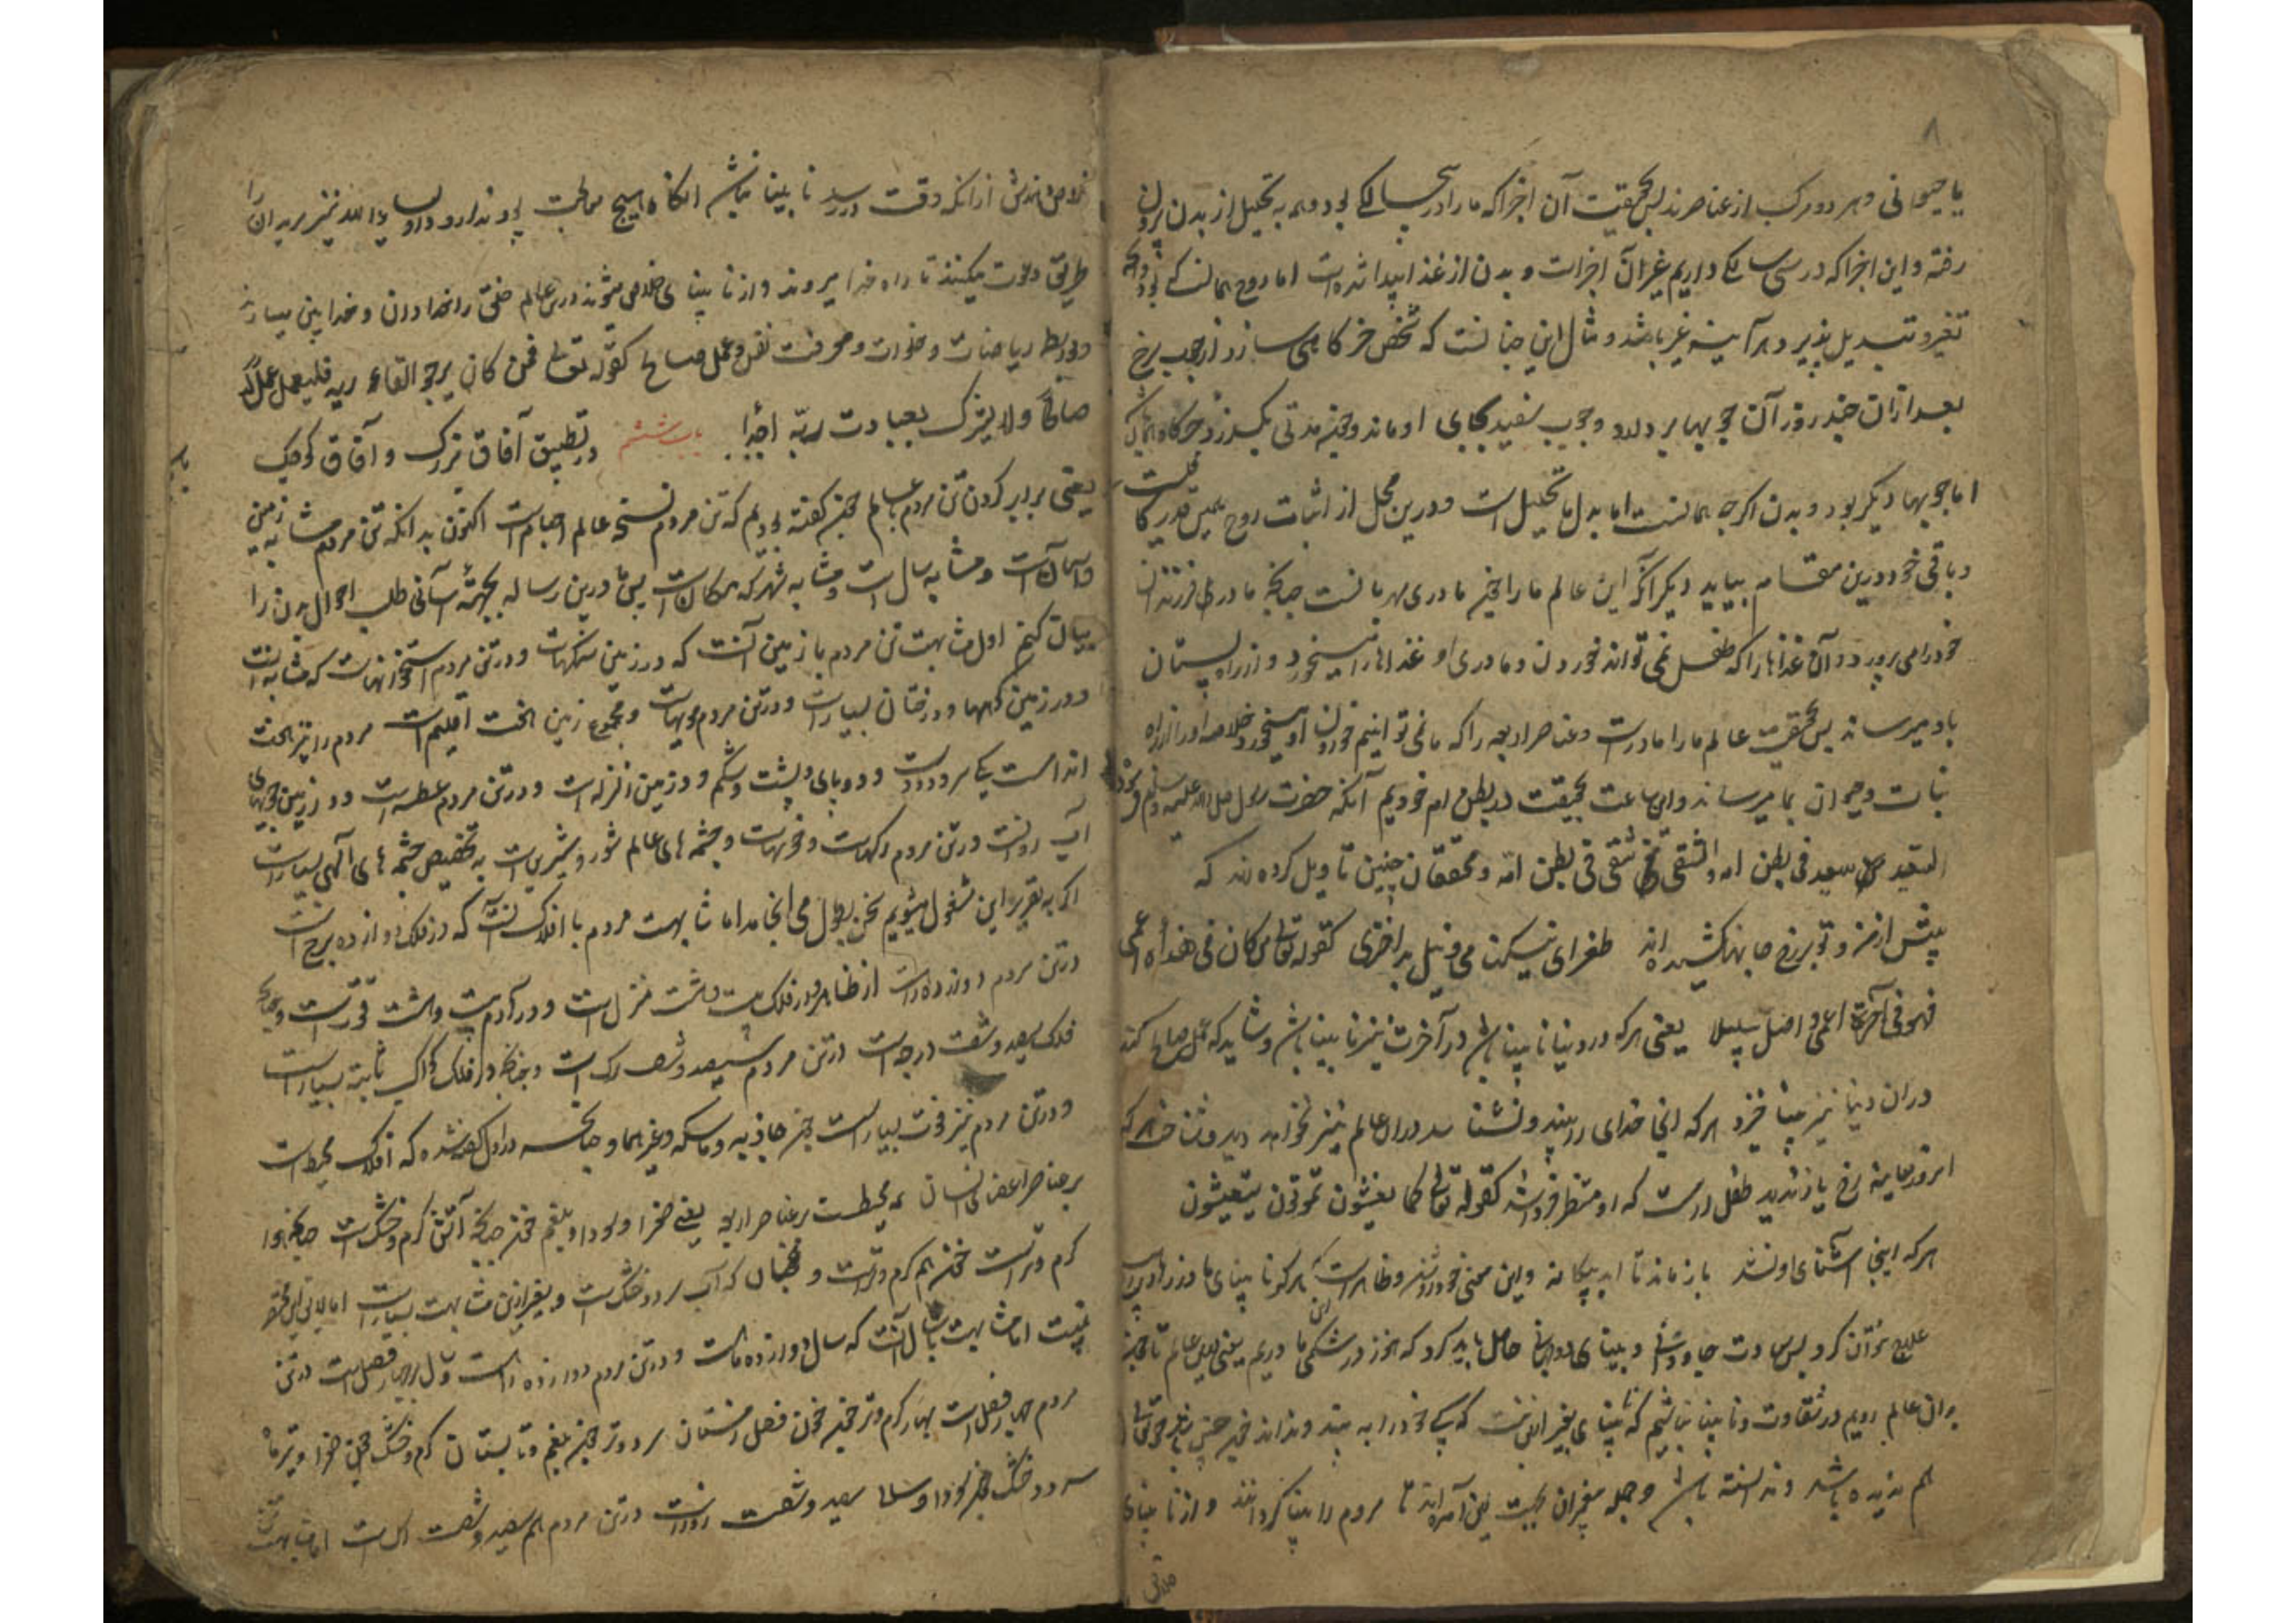 ۸
یا حیوانی و هر دو مرکب از عناصرند پس بحقیقت آن اجزا که ما را در سالگی بود همه به تحلیل از بدن برون
رفته و این اجزا که در سی سالگی داریم غیر آن اجزاست و بدن از غذا پیدا شده است اما روح همانست که بود و آنکه
تغیر و تبدیل پذیرد هر آینه غیر باشد و مثال این چنانست که شخصی خرگاهی سازد از چوب سرخ
بعد از آن چند روز آن چوبها بردارد و چوب سفید بجای او ماند و چون مدتی بگذرد خرگاه همان
اما چوبها دیگر بود و بدن اگر چه همانست اما بدل ما تحلیل است و درین محل از اثبات روح همین قدر
و باقی خود درین مقام بیاید دیگر آنکه این عالم ما را چون مادری مهربانست چنانکه مادر طفل فرزندان
خود را می پرورد و آن غذاها را که طفل نمی تواند خوردن و مادر او غذاها را میخورد و از راه پستان
باو میرساند پس بحقیقت عالم ما را مادرست و عناصر اربعه را که ما نمی توانیم خوردن او میخورد و خلاصه او را از راه
نبات و حیوان بما میرساند و این ساعت بحقیقت در بطن ام خودیم آنکه حضرت رسول صلی الله علیه و سلم فرمود
السعید من سعید فی بطن امه و الشقی من شقی فی بطن امه و محققان چنین تاویل کرده اند که
پیش از من و تو بر رخ جانها کشیده اند طغرای نیکبختی و نیل بد اختری کقوله تعالی من کان فی هذه اعمی
فهو فی الآخرة اعمی و اضل سبیلا یعنی هر که در دنیا نابینا باشد در آخرت نیز نابینا باشد و شاید که عمل صالح کند
در آن دنیا نیز بینا خیزد هر که اینجا خدای را نبیند و نشناسد در آن عالم نیز نخواهد دید و شناخت هر که
امروز معاینه رخ یار ندید طفل رهست که او منتظر فرداشد کقوله تعالی کما تعیشون تموتون
هر که اینجا آشنای او نشد باز ماند تا ابد بیگانه و این معنی خود روشن و ظاهر است که هر کو نابینای مادرزاد
علاج نتوان کرد پس سعادت جاودانی و بینای دو جهانی حاصل باید کرد که هنوز در شکم مادریم یعنی درین عالم تا چون
بران عالم رویم در شقاوت و نابینا نباشیم که نابینای بغیر ازین نیست که کسی خود را نه بیند و نداند
هم ندیده باشد و ندانسته باشد و جمله پیغمبران بجهت این آمده اند تا مردم را بینا گردانند و از نابینای
خلاص دهند پیش از آنکه وقت در رسد نابینا باشد آنگاه هیچ معالجت پذیرد ندارد و اولیاء الله نیز مریدان را
طریق دلالت میکنند تا راه خدا میروند و از نابینای خلاص میشوند درین عالم خلق را خدادان و خدابین میسازند
بواسطه ریاضات و خلوات و معرفت نفس و عمل صالح کقوله تعالی فمن کان یرجو القاء ربه فلیعمل عملا
صالحا و لا یشرک بعبادت ربه احدا باب ششم در تطبیق آفاق بزرگ و آفاق کوچک
یعنی برابر کردن تن مردم بعالم چون گفته بودیم که تن مردم نسخه عالم اجسام است اکنون بدانکه تن مردم مشابه زمین
و آسمان است و مشابه سال است و مشابه شهر که مکان است پس ما درین رساله بجهة آسانی طلب احوال بدن را
بیان کنیم اول مشابهت تن مردم با زمین آنست که در زمین سنگهاست و در تن مردم استخوانهاست که مشابه آنست
و در زمین گیاهها و درختان بسیار است و در تن مردم مویهاست و مجموع زمین هفت اقلیم است مردم را نیز هفت
اندامست یکی سر و دو دست و دو پای و پشت و شکم و در زمین زلزله است و در تن مردم عطسه است و در زمین جویهای
آب روانست در تن مردم رگهاست و خونهاست و چشمه های عالم شور و شیرین است به تخصیص چشمه های آدمی بسیار است
اگر به تقریر این مشغول میشویم سخن بطول می انجامد اما مشابهت مردم با افلاک آنست که در فلک دوازده برج است
در تن مردم دوازده راهست از ظاهر و در فلک بیست و هشت منزل است و در آدم بیست و هشت قوتست و چنانکه
فلک سیصد و شصت درجه است در تن مردم سیصد و شصت رگ است و چنانکه در فلک کواکب ثابته بسیار است
و در تن مردم نیز قوت بسیار است چون جاذبه و ماسکه و غیرهما و چنانکه در اول گفته شده که افلاک محیط است
بر عناصر اعضای انسان هم محیطست بر عناصر اربعه یعنی صفرا و سودا و بلغم و خون چنانکه آتش گرم و خشک است چنانکه هوا
گرم و ترست خون هم گرم و ترست و همچنان که آب سرد و خشک است و بغیر ازین مشابهت بسیار است اما
نیست اما مشابهت با سال آنست که سال دوازده ماهست و در تن مردم دوازده راهست و سال را چهار فصل است در تن
مردم چهار فصل است بهار گرم و تر چون خون فصل زمستان سرد و تر چون بلغم و تابستان گرم و خشک چون صفرا و تیرماه
سرد و خشک چون سودا و سال سیصد و شصت روزست در تن مردم هم سیصد و شصت رگ است اما مشابهت